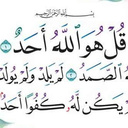 بِسْمِ اللَّهِ الرَّحْمَٰنِ الرَّحِيمِ
قُلْ هُوَ اللَّهُ أَحَدٌ
الصَّمَدُ لَمْ يَلِدْ وَلَمْ يُولَدْ
يَكُن لَّهُ كُفُوًا أَحَدٌ